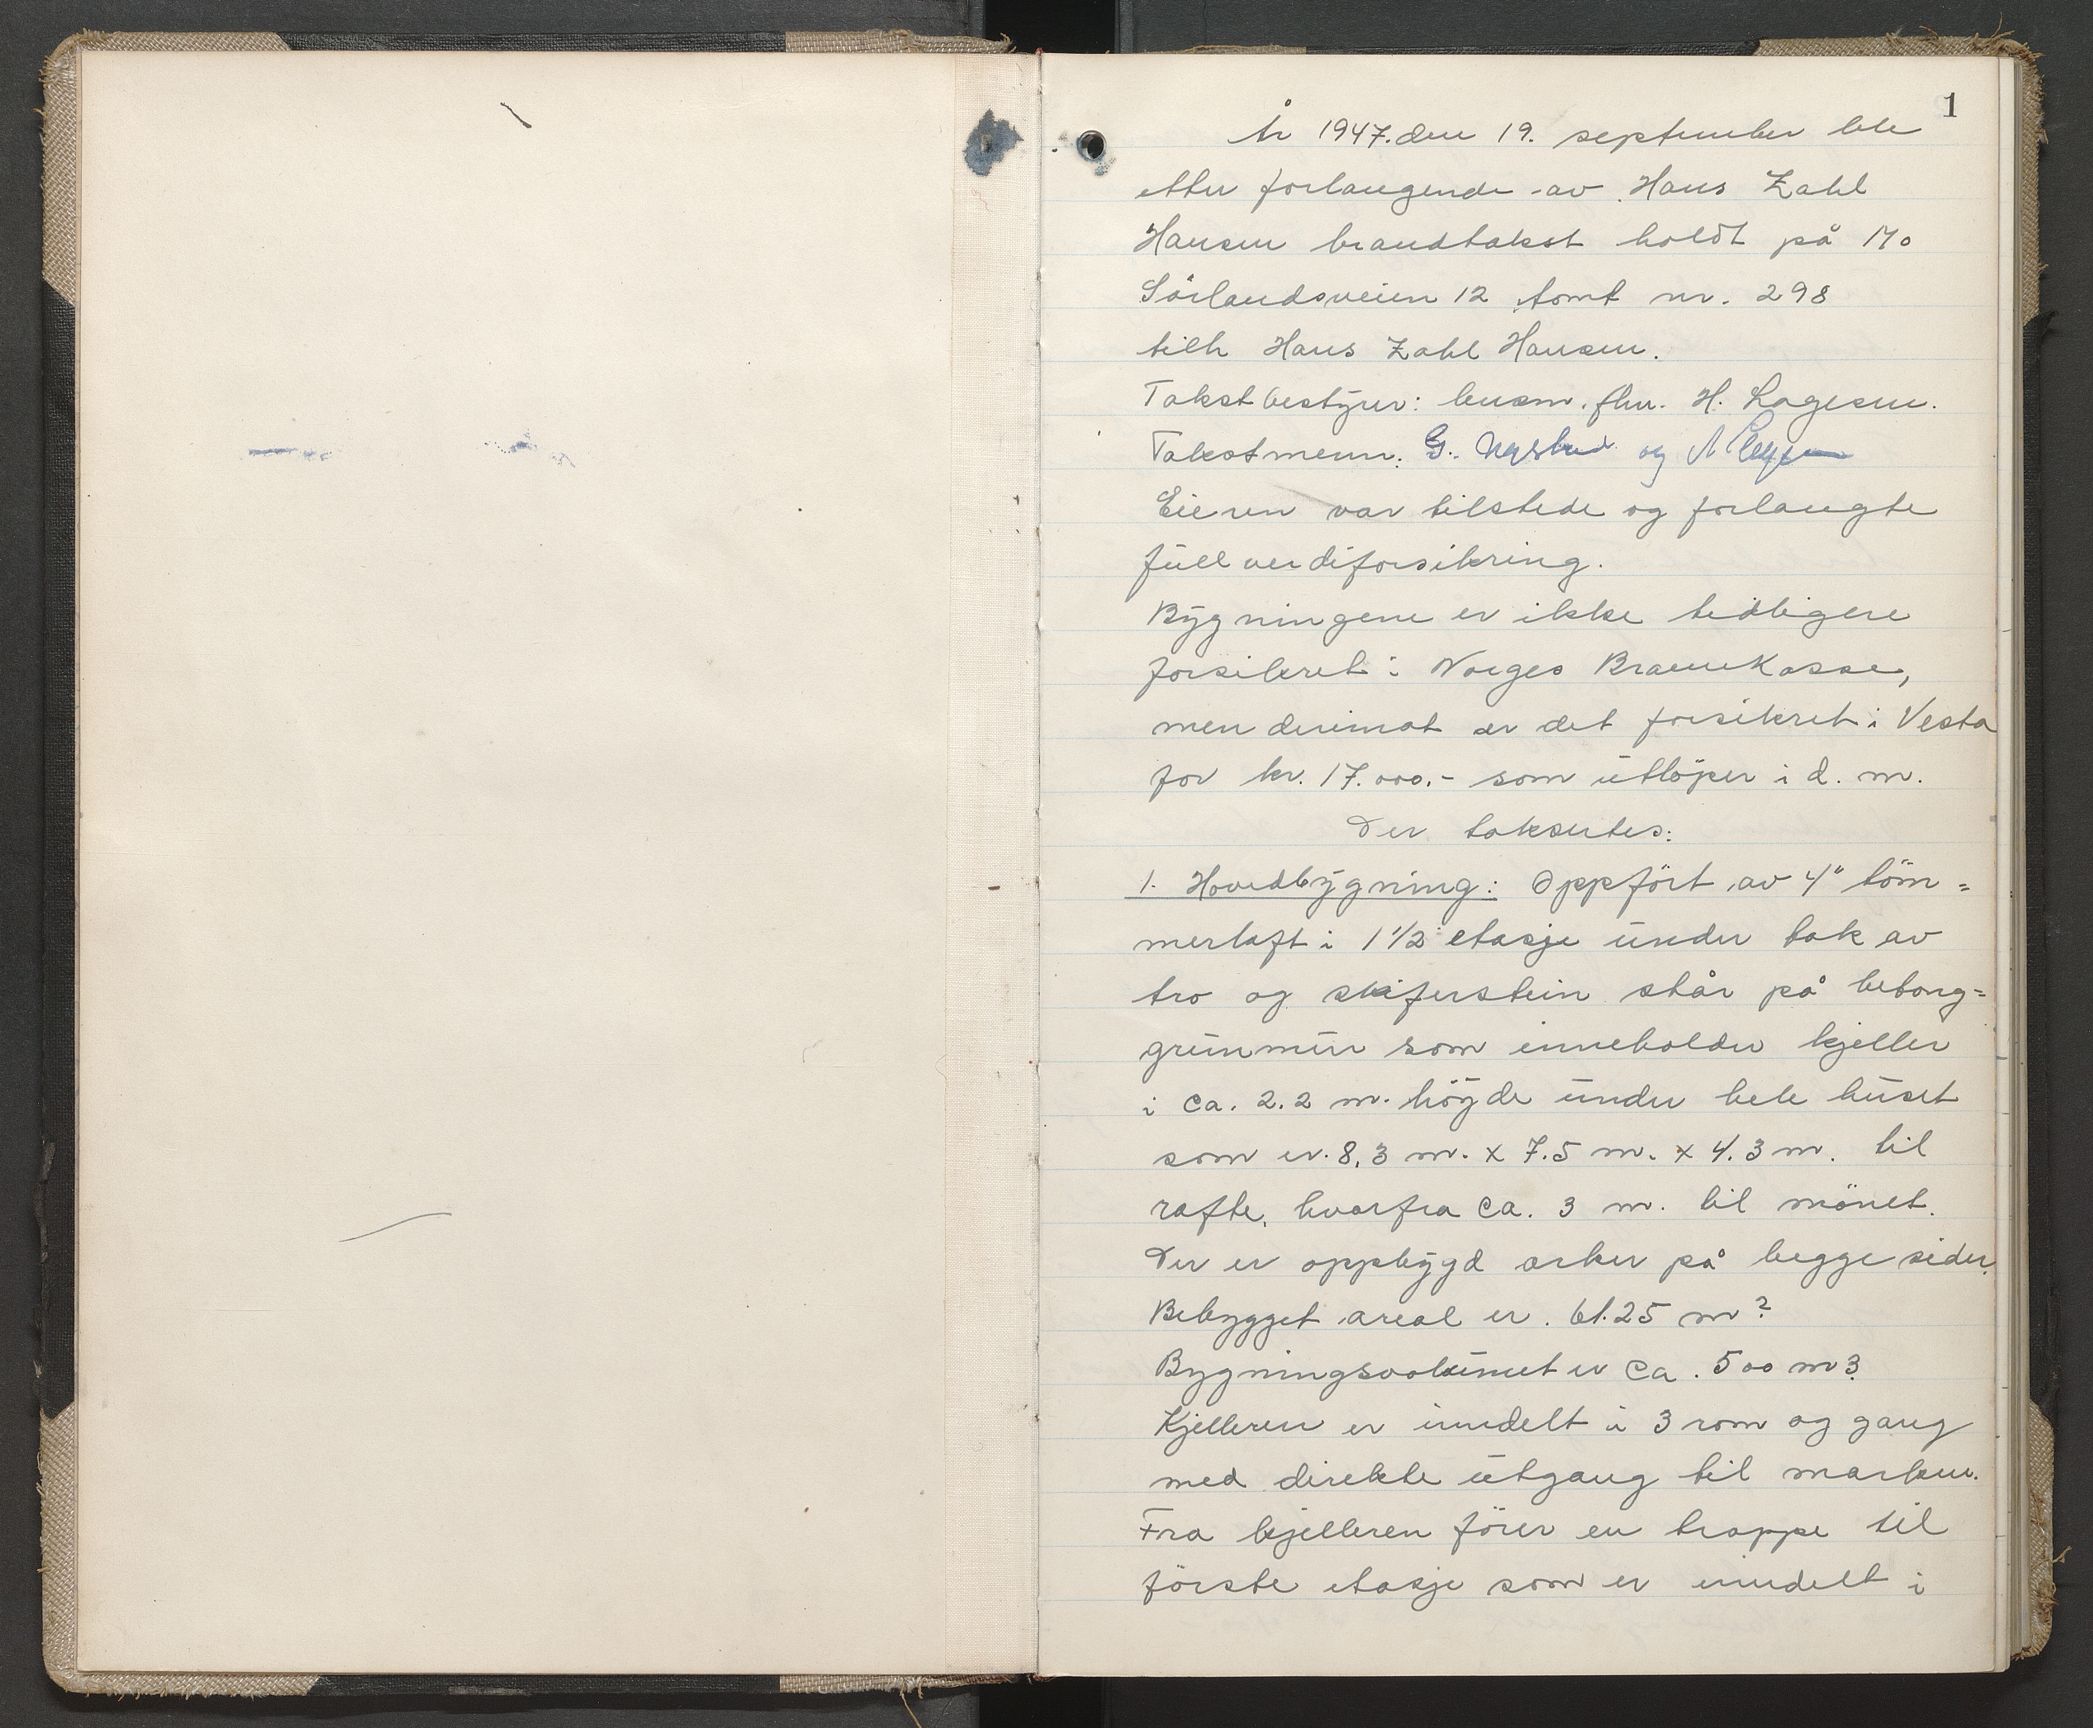 1
År 1947. den 19. september ble
etter forlangende av Hans Zahl
Hansen brandtakst holdt på Mo
Sörlandsveien 12 tomt nr. 298
tilh Hans Zahl Hansen.
Takstbestyrer: lensm. flm. H. Lagesen.
Takstmenn: G. Nystad og A
Eieren var tilstede og forlangte
full verdiforsikring.
Bygningene er ikke tidligere
forsikret i Norges Brannkasse,
men derimot er det forsikret i Vesta
for kr. 17.000.- som utlöper i d. m.
Der taksertes:
1. Hovedbygning: Oppfört av 4" töm=
merlaft i 1 1/2 etasje under tak av
tro og skiferstein står på betong=
grunmur som inneholder kjeller
i ca. 2.2 m. höyde under hele huset
som er. 8.3 m. x 7.5 m. x 4.3 m. til
rafte, hvorfra ca. 3 m. til mönet.
Der er oppbygd arker på begge sider.
Bebygget areal er. 61.25 m2
Bygningsvolumet er ca. 500 m3.
Kjelleren er inndelt i 3 rom og gang
med direkte utgang til marken.
Fra kjelleren förer en trappe til
förste etasje som er inndelt i